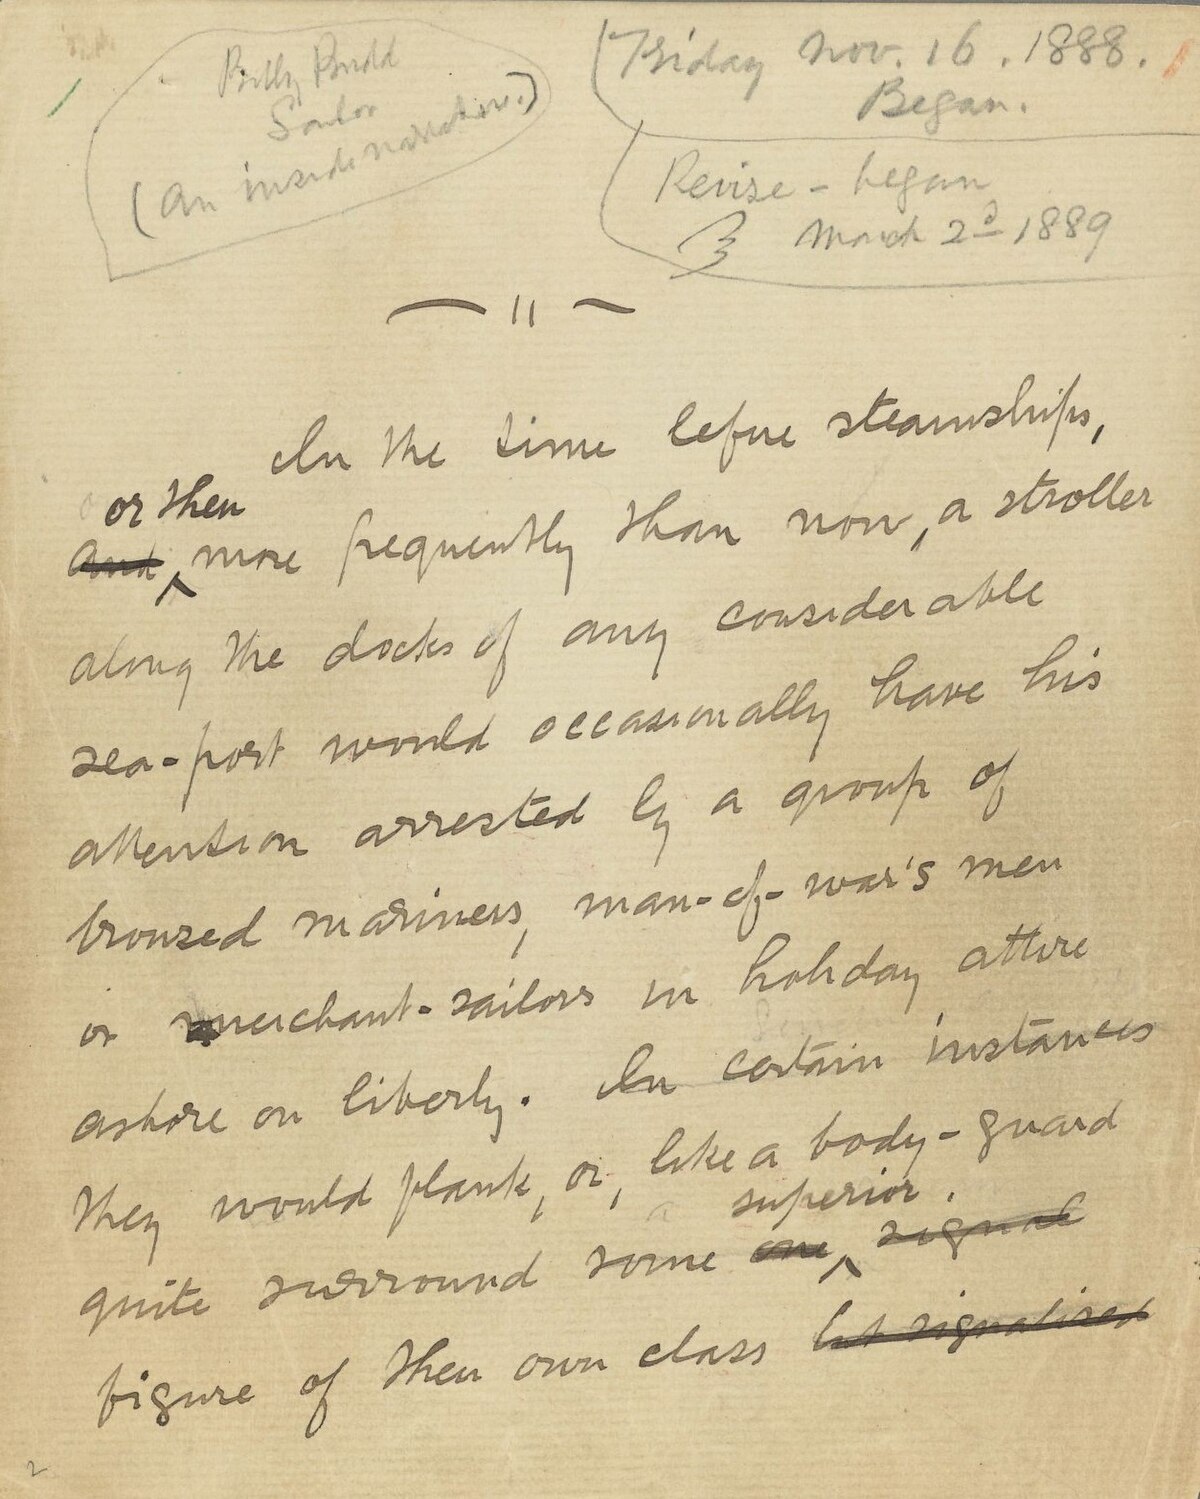 Billy Budd
Sailor
(An inside narrative.)
Friday Nov. 16. 1888.
Began.
Revise - began
March 2d 1889
In the time before steamships,
or then
and more frequently than now, a stroller
along the docks of any considerable
sea-port would occasionally have his
attention arrested by a group of
bronzed mariners, man-of-war's men
or merchant-sailors in holiday attire
ashore on liberty. In certain instances
they would flank, or, like a body-guard
superior
quite surround some one signal
figure of their own class but signalized
2